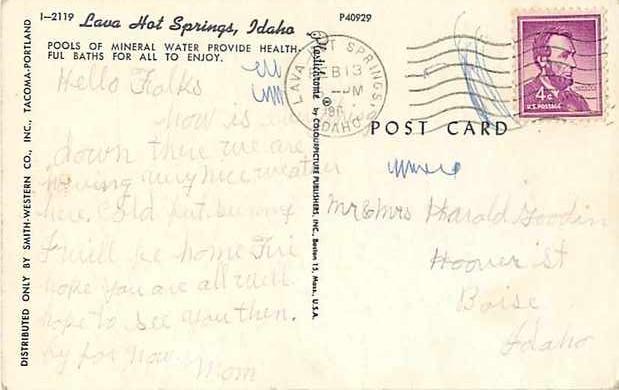 I-2119 Lava Hot Springs, Idaho
POOLS OF MINERAL WATER PROVIDE HEALTH-
FUL BATHS FOR ALL TO ENJOY.
P40929
DISTRIBUTED ONLY BY SMITH-WESTERN CO., INC., TACOMA-PORTLAND
Plastichrome ® by COLOURPICTURE PUBLISHERS, INC., Boston 15, Mass., U.S.A.
LAVA HOT SPRINGS,
FEB 13
PM
IDAHO
4¢
U.S. POSTAGE
POST CARD
Hello Folks
how is
down there we are
having very nice weather
here. Cold but
I will be home
hope you are all well
hope to see you then.
by for now
Mom
Mr & Mrs Harald Goodin
Hoover St
Boise
Idaho